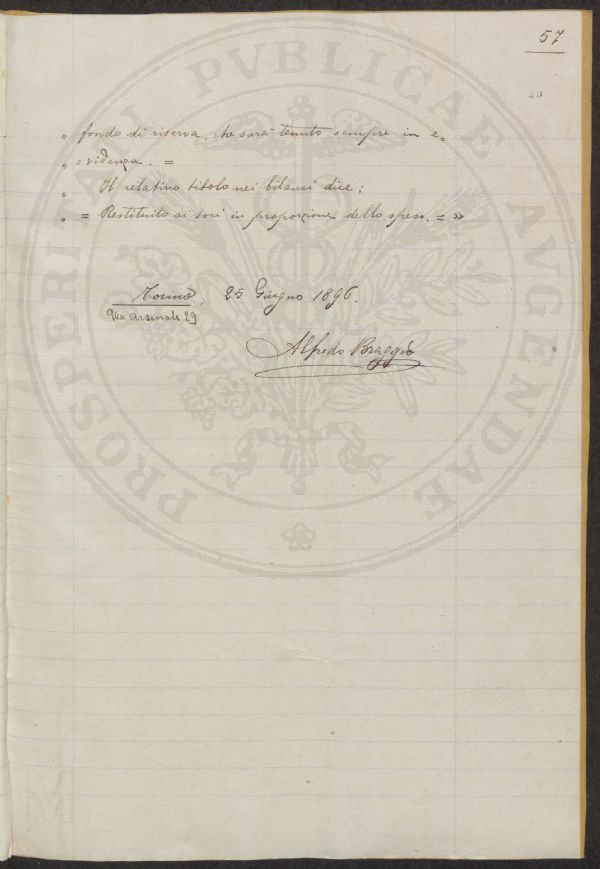 57
20
„ fondo di riserva, che sarà tenuto sempre in e=
„ = videnza. =
„ Il relativo titolo nei bilanci dice:
„ = Restituito ai soci in proporzione dello speso. = »
Torino, 25 Giugno 1896.
Via Arsenale 29
Alfredo Braggio
PROSPERITATI PVBLICAE AVGENDAE